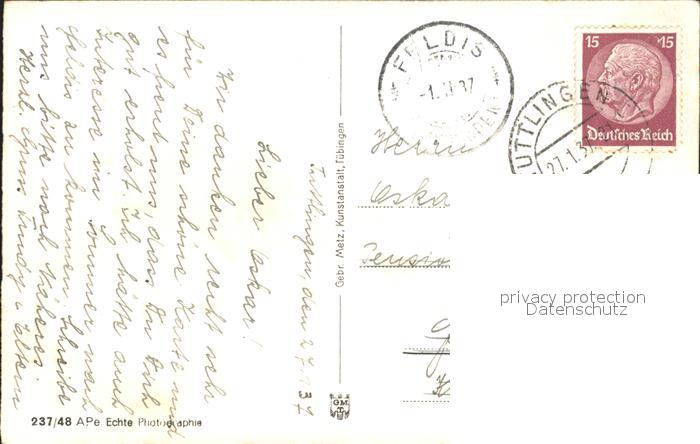 Tuttlingen, den 27.1.37
Lieber Oskar!
Wir danken recht sehr
für Deine schöne Karte und
es freut uns, dass Du Dich
gut erholst. Ich hätte auch
Interesse im Sommer nach
Feldis zu kommen. Schreibe
uns bitte noch Näheres.
Herzl. Gruss
237/48 APe Echte Photographie
Gebr. Metz, Kunstanstalt, Tübingen
GMT
FELDIS
TUTTLINGEN
27.1.37
15 15
Deutsches Reich
Herrn
Oska
Pensio
privacy protection
Datenschutz